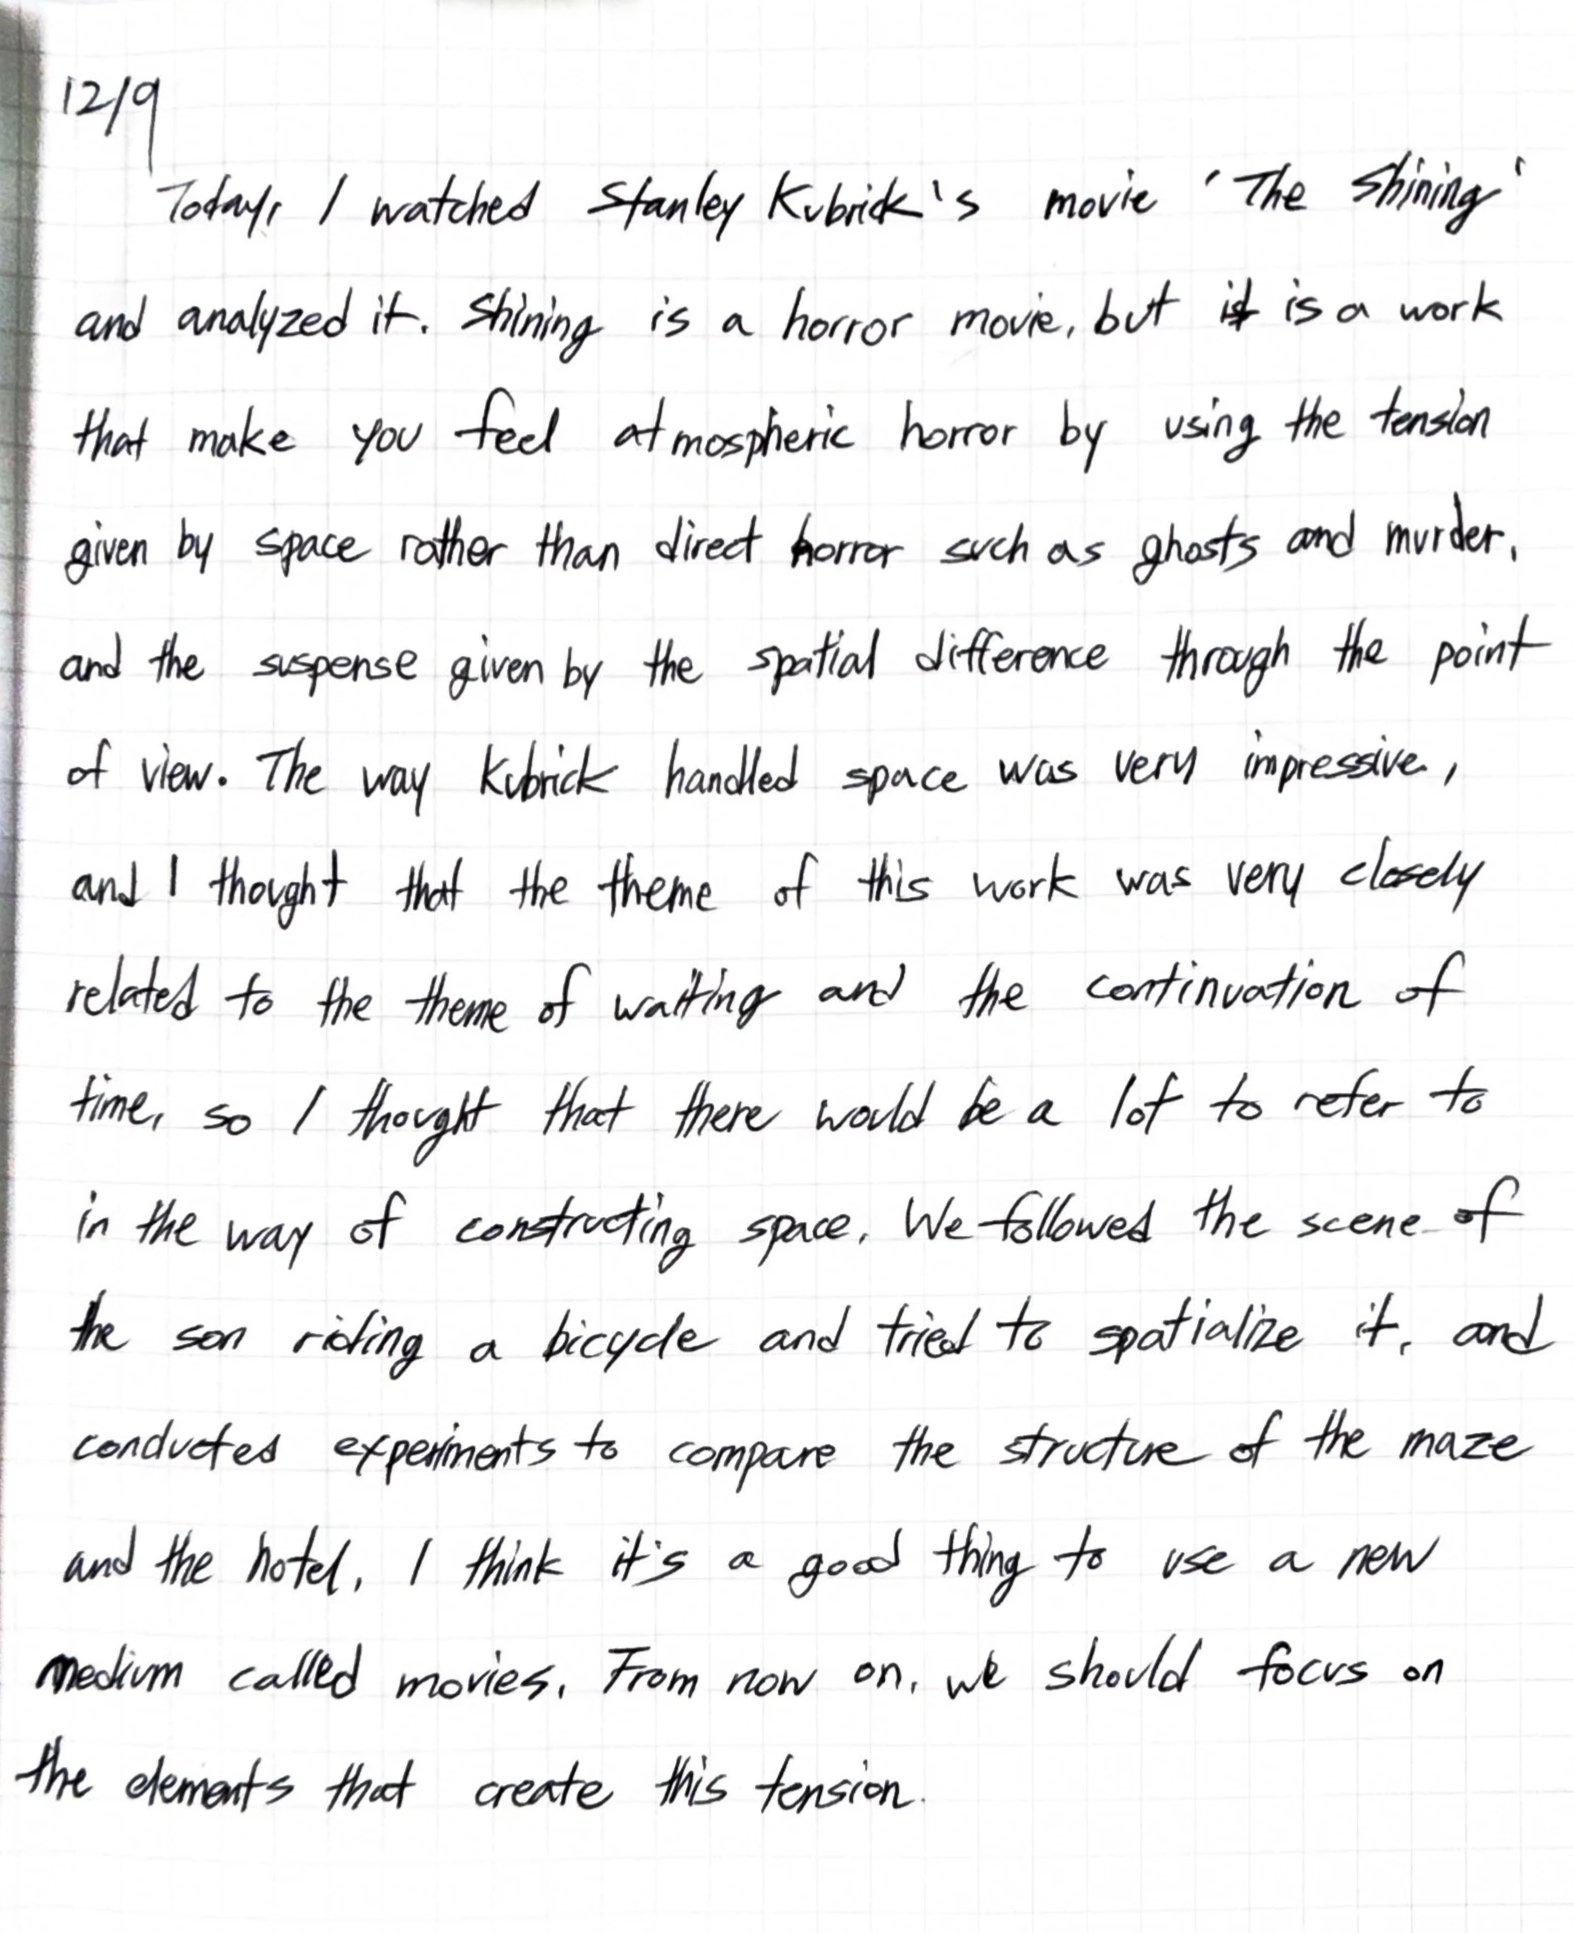 12/9
Today, I watched Stanley Kubrick's movie 'The Shining'
and analyzed it. Shining is a horror movie, but it is a work
that make you feel atmospheric horror by using the tension
given by space rather than direct horror such as ghosts and murder,
and the suspense given by the spatial difference through the point
of view. The way Kubrick handled space was very impressive,
and I thought that the theme of this work was very closely
related to the theme of waiting and the continuation of
time, so I thought that there would be a lot to refer to
in the way of constructing space. We followed the scene of
the son riding a bicycle and tried to spatialize it, and
conducted experiments to compare the structure of the maze
and the hotel. I think it's a good thing to use a new
medium called movies. From now on, we should focus on
the elements that create this tension.